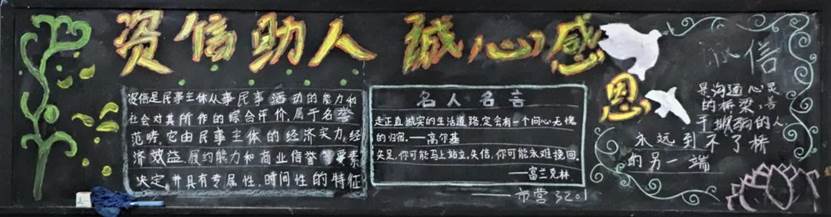 资信助人 诚心感恩
资信是民事主体从事民事活动的能力和
社会对其所作的综合评价,属于名誉
范畴,它由民事主体的经济实力,经
济效益,履约能力和商业信誉等要素
决定,并具有专属性,时间性的特征
名人名言
走正直诚实的生活道路,定会有一个问心无愧
的归宿。——高尔基
失足,你可能马上站立,失信,你可能永难挽回。
——富兰克林
市营3201
诚信
是沟通心灵
的桥梁,善
于欺骗的人
永远到不了桥
的另一端